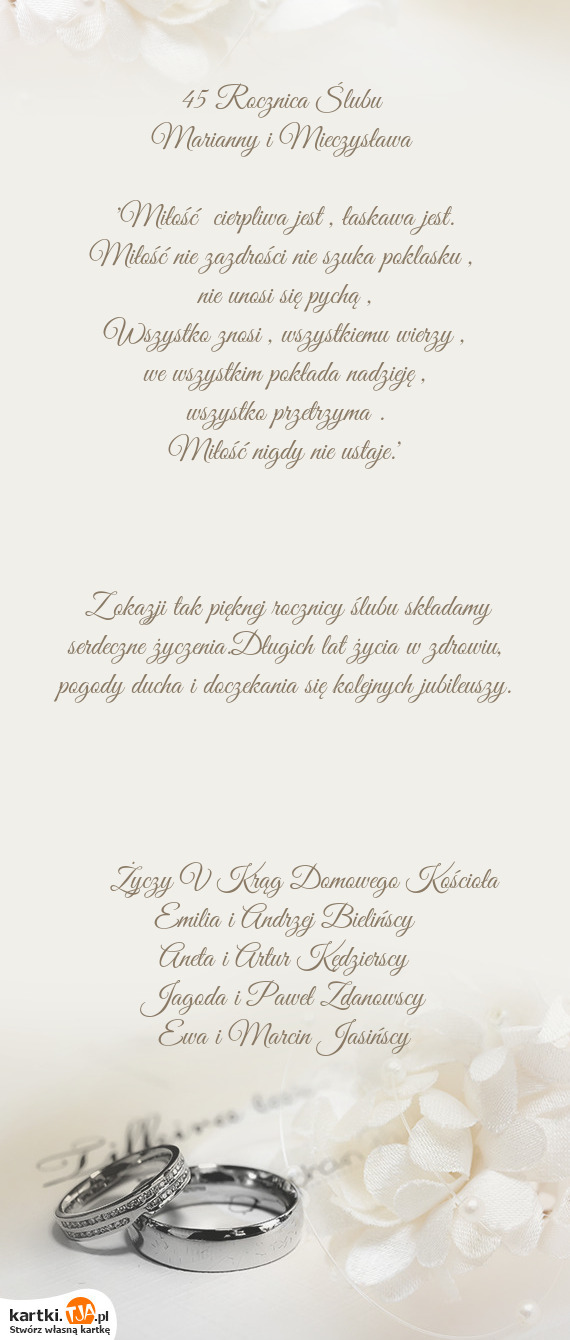 45 Rocznica Ślubu
Marianny i Mieczysława
'Miłość cierpliwa jest , łaskawa jest.
Miłość nie zazdrości nie szuka poklasku ,
nie unosi się pychą ,
Wszystko znosi , wszystkiemu wierzy ,
we wszystkim pokłada nadzieję ,
wszystko przetrzyma .
Miłość nigdy nie ustaje.'
Z okazji tak pięknej rocznicy ślubu składamy
serdeczne życzenia.Długich lat życia w zdrowiu,
pogody ducha i doczekania się kolejnych jubileuszy.
Życzy V Krąg Domowego Kościoła
Emilia i Andrzej Bielińscy
Aneta i Artur Kędzierscy
Jagoda i Paweł Zdanowscy
Ewa i Marcin Jasińscy
kartki.TJA.pl
Stwórz własną kartkę